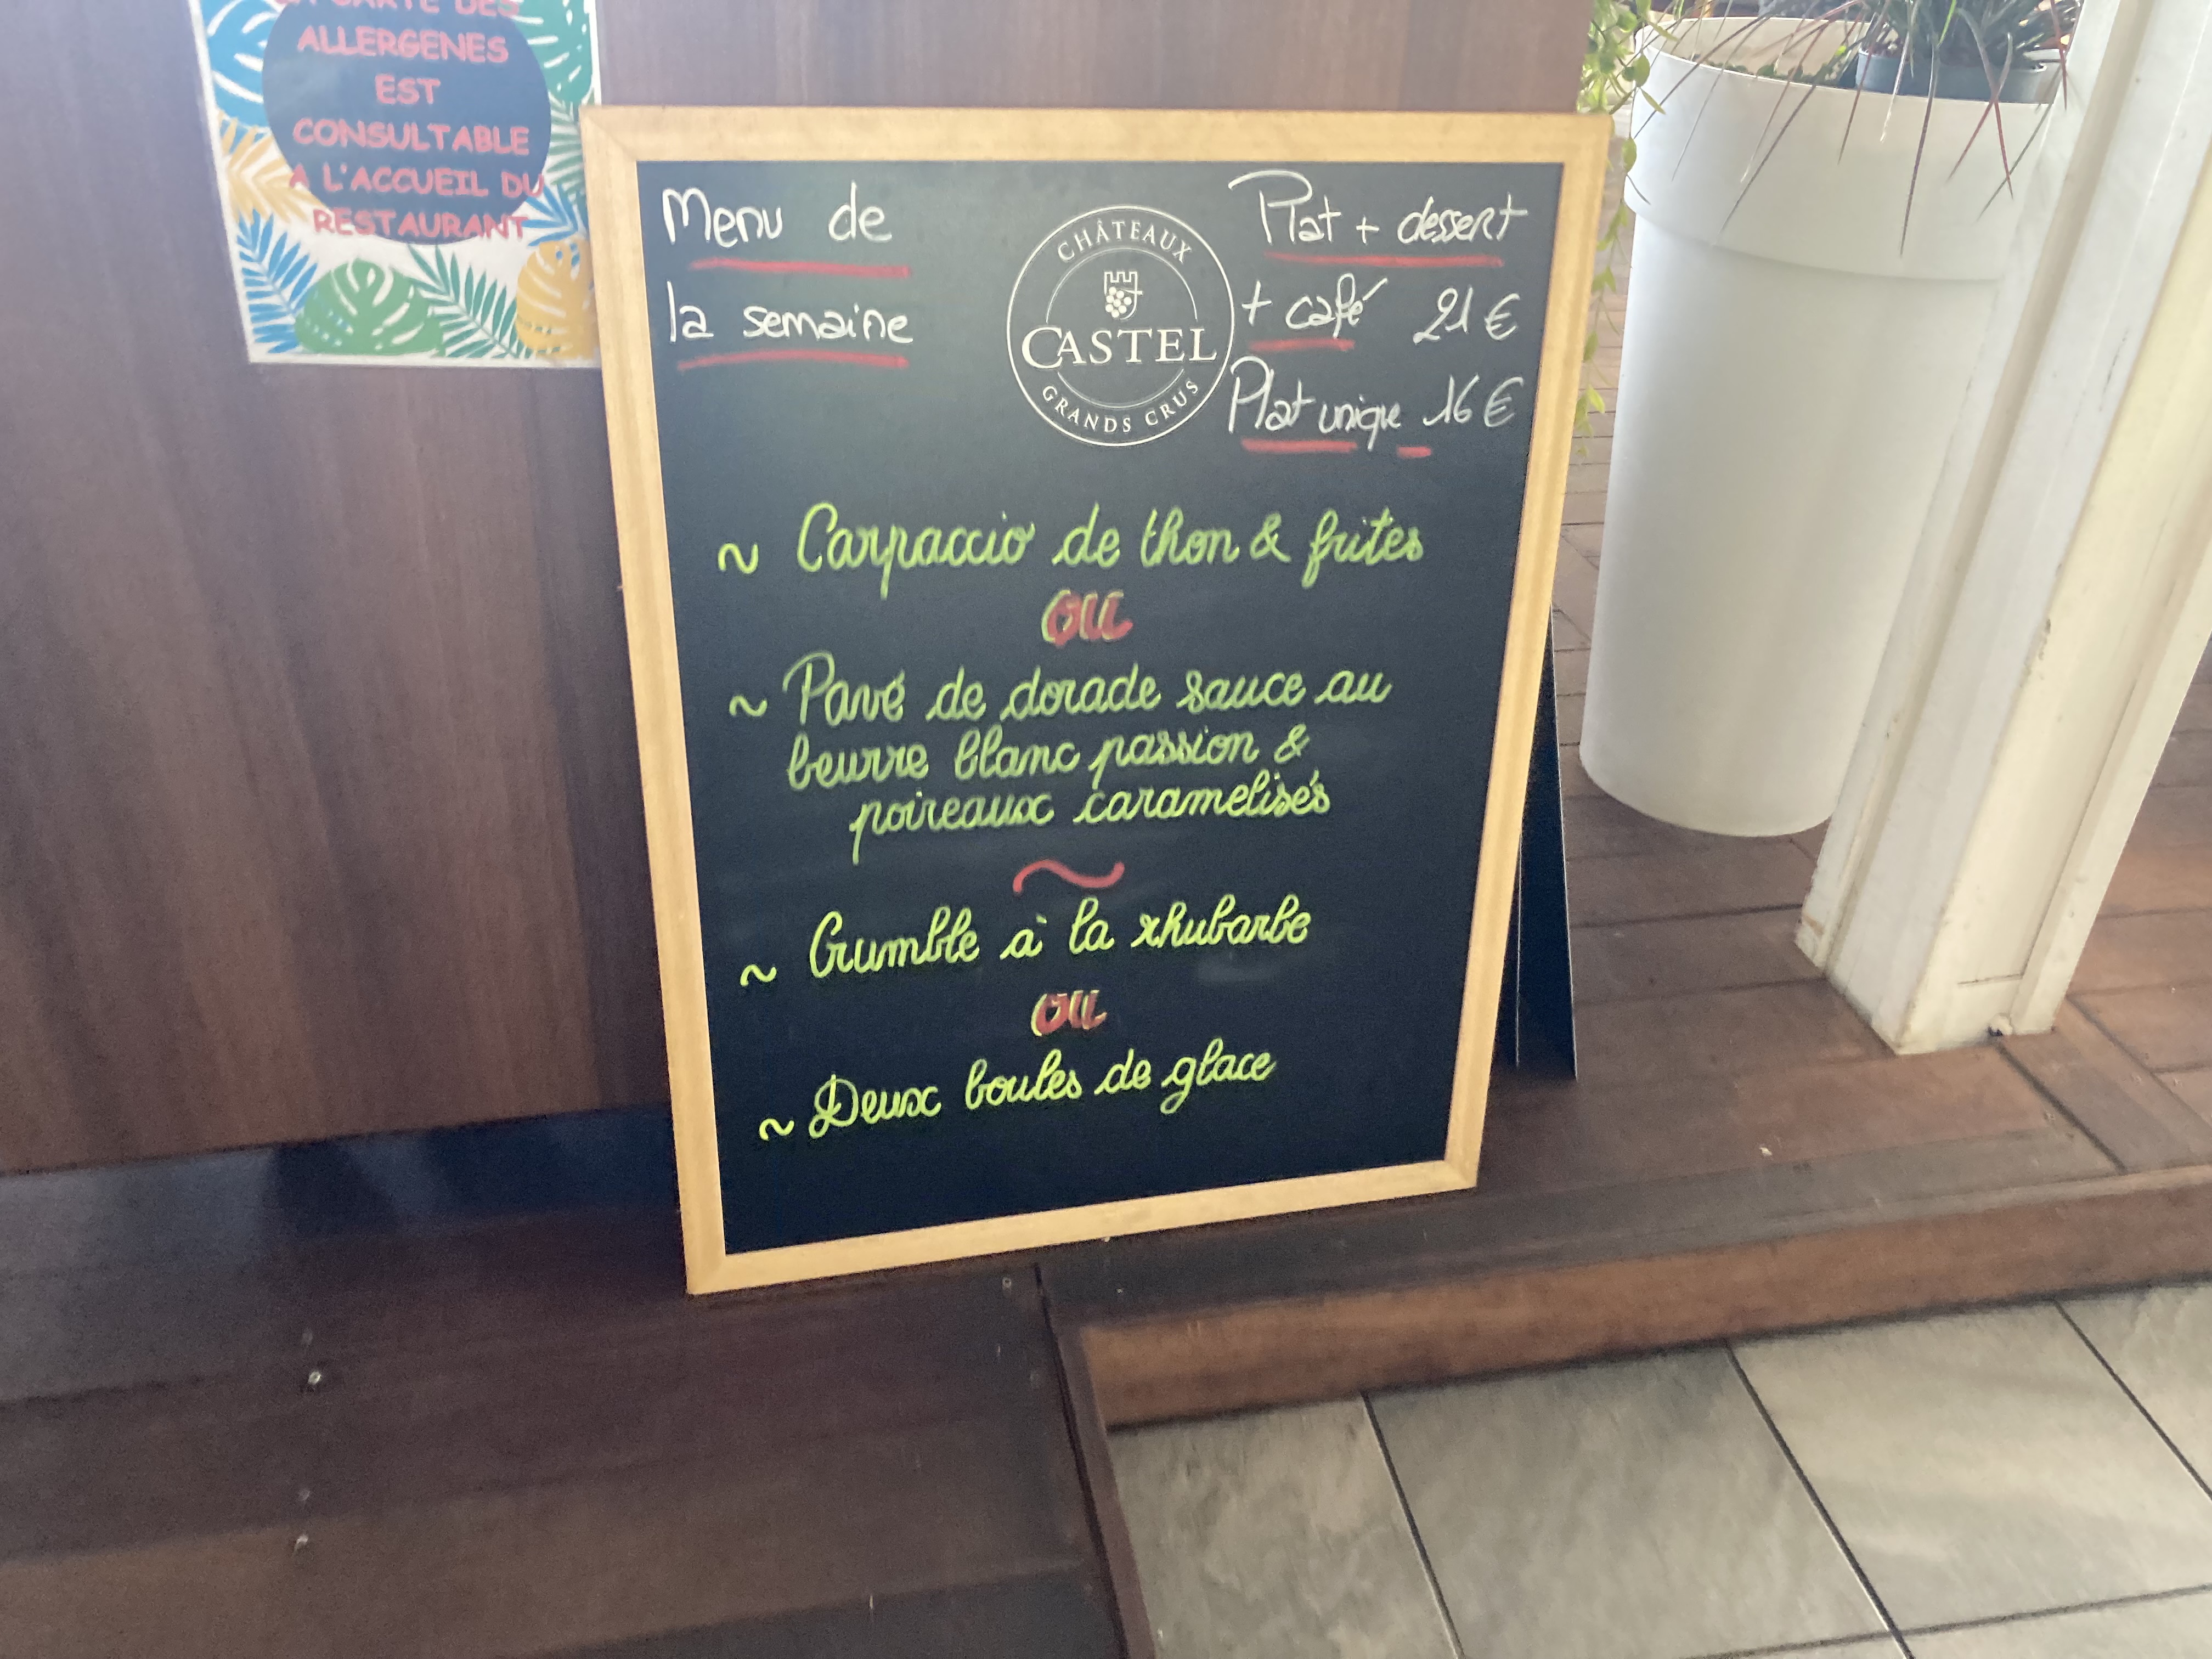 LA CARTE DES
ALLERGENES
EST
CONSULTABLE
A L'ACCUEIL DU
RESTAURANT
Menu de
la semaine
CHÂTEAUX
CASTEL
GRANDS CRUS
Plat + dessert
+ café 21 €
Plat unique 16 €
~ Carpaccio de thon & frites
OU
~ Pavé de dorade sauce au
beurre blanc passion &
poireaux caramelisés
~
~ Crumble à la rhubarbe
OU
~ Deux boules de glace